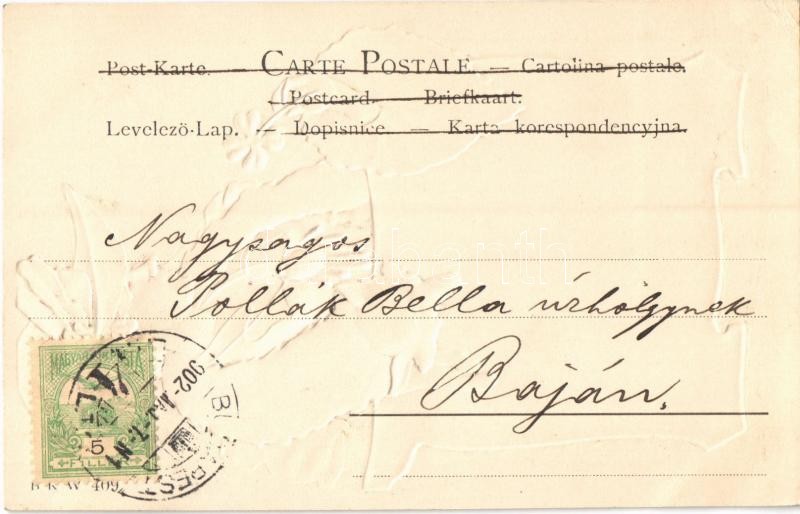 Post-Karte. — CARTE POSTALE. — Cartolina postale.
Postcard. Briefkaart.
Levelezö-Lap. — Dopisnice. — Karta korespondencyjna.
Nagysagos
Pollák Bella úrhölgynek
Baján.
MAGYAR KIR. POSTA
5
FILLÉR
902
B. K. W. 409